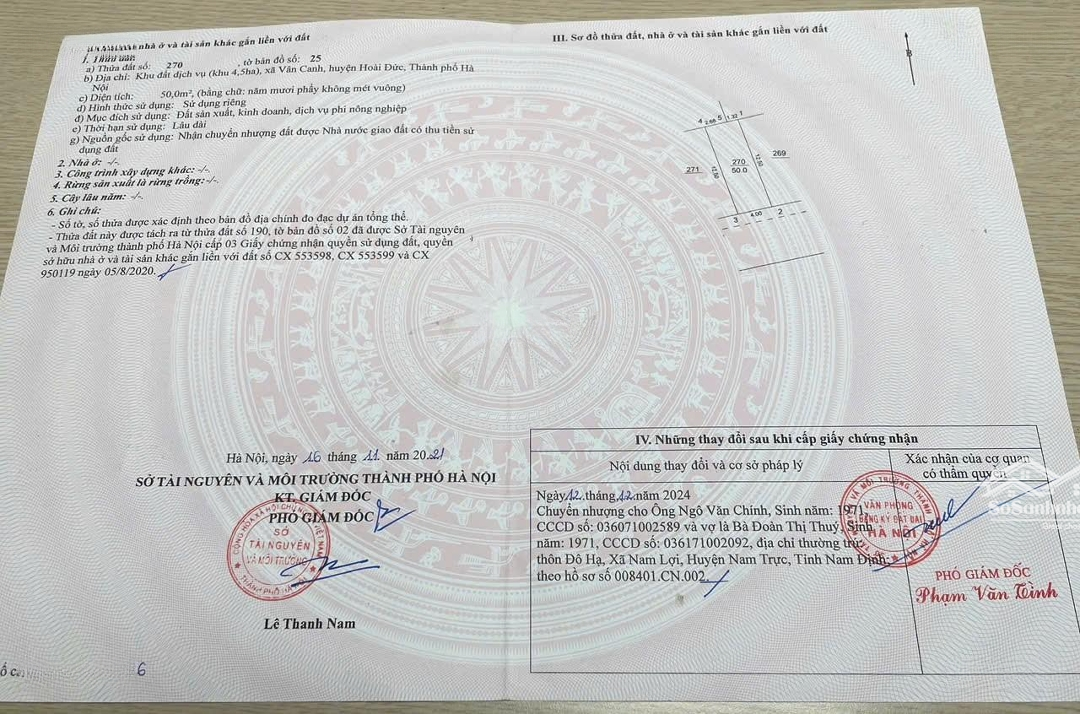 nhà ở và tài sản khác gắn liền với đất
1. Thửa đất
a) Thửa đất số: 270 , tờ bản đồ số: 25
b) Địa chỉ: Khu đất dịch vụ (khu 4,5ha), xã Vân Canh, huyện Hoài Đức, Thành phố Hà
Nội
c) Diện tích: 50,0m², (bằng chữ: năm mươi phẩy không mét vuông)
d) Hình thức sử dụng: Sử dụng riêng
đ) Mục đích sử dụng: Đất sản xuất, kinh doanh, dịch vụ phi nông nghiệp
e) Thời hạn sử dụng: Lâu dài
g) Nguồn gốc sử dụng: Nhận chuyển nhượng đất được Nhà nước giao đất có thu tiền sử
dụng đất
2. Nhà ở: -/-
3. Công trình xây dựng khác: -/-
4. Rừng sản xuất là rừng trồng: -/-
5. Cây lâu năm: -/-
6. Ghi chú:
- Số tờ, số thửa được xác định theo bản đồ địa chính đo đạc dự án tổng thể.
- Thửa đất này được tách ra từ thửa đất số 190, tờ bản đồ số 02 đã được Sở Tài nguyên
và Môi trường thành phố Hà Nội cấp 03 Giấy chứng nhận quyền sử dụng đất, quyền
sở hữu nhà ở và tài sản khác gắn liền với đất số CX 553598, CX 553599 và CX
950119 ngày 05/8/2020.
Hà Nội, ngày 16 tháng 11 năm 2021
SỞ TÀI NGUYÊN VÀ MÔI TRƯỜNG THÀNH PHỐ HÀ NỘI
KT. GIÁM ĐỐC
PHÓ GIÁM ĐỐC
CỘNG HÒA XÃ HỘI CHỦ NGHĨA VIỆT NAM
SỞ
TÀI NGUYÊN
VÀ MÔI TRƯỜNG
THÀNH PHỐ HÀ NỘI
Lê Thanh Nam
6
III. Sơ đồ thửa đất, nhà ở và tài sản khác gắn liền với đất
B
4 2.68 5 1.32 1
271 12.50 270 12.50 269
50.0
3 4.00 2
IV. Những thay đổi sau khi cấp giấy chứng nhận
Nội dung thay đổi và cơ sở pháp lý
Xác nhận của cơ quan
có thẩm quyền
Ngày 12 tháng 12 năm 2024
Chuyển nhượng cho Ông Ngô Văn Chính, Sinh năm: 1971,
CCCD số: 036071002589 và vợ là Bà Đoàn Thị Thuý, Sinh
năm: 1971, CCCD số: 036171002092, địa chỉ thường trú:
thôn Đô Hạ, Xã Nam Lợi, Huyện Nam Trực, Tỉnh Nam Định,
theo hồ sơ số 008401.CN.002
VĂN PHÒNG
ĐĂNG KÝ ĐẤT ĐAI
HÀ NỘI
PHÓ GIÁM ĐỐC
Phạm Văn Tình